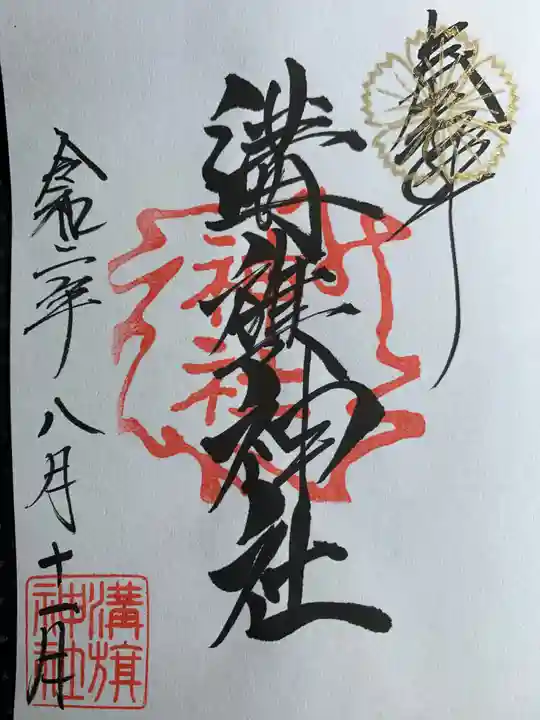 奉拝
溝旗神社
神社
令和二年八月十一月
溝旗
神社